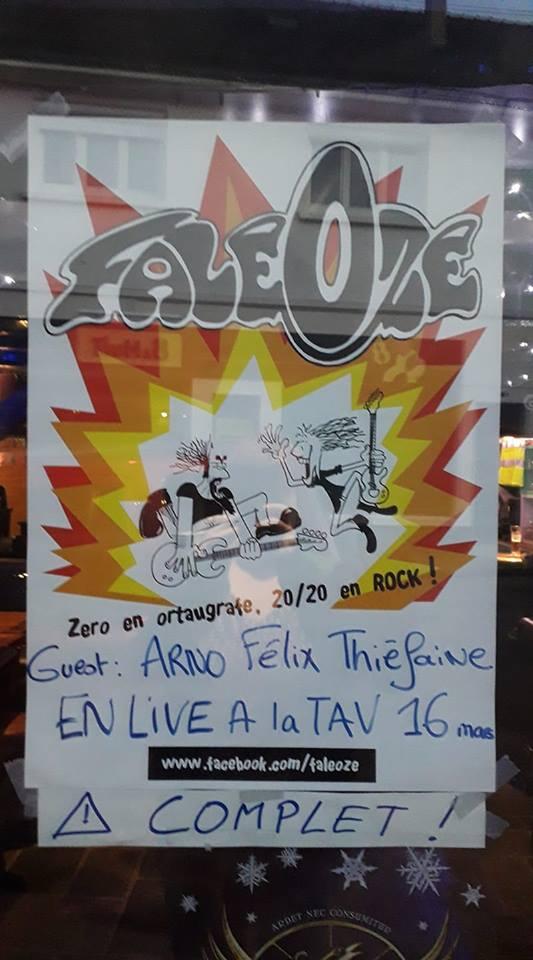 FALEOZE
Zero en ortaugrafe, 20/20 en ROCK !
Guest : ARNO Félix Thiéfaine
EN LIVE A la TAV 16 mars
www.facebook.com/faleoze
⚠ COMPLET !
ARDET NEC CONSUMITUR